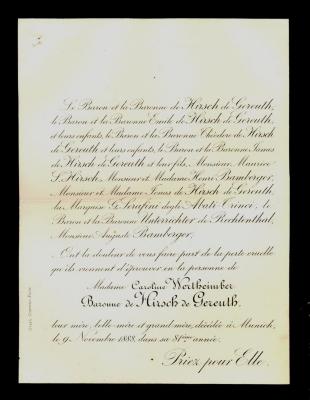 Le Baron et la Baronne de Hirsch de Gereuth,
le Baron et la Baronne Emile de Hirsch de Gereuth,
et leurs enfants, le Baron et la Baronne Théodore de Hirsch
de Gereuth et leurs enfants, le Baron et la Baronne James
de Hirsch de Gereuth et leur fils, Monsieur Maurice
S. Hirsch, Monsieur et Madame Henri Bamberger,
Monsieur et Madame Jonas de Hirsch de Gereuth,
la Marquise G. Serafini degli Abati Trinci, le
Baron et la Baronne Unterrichter de Rechtenthal,
Monsieur Auguste Bamberger,
Ont la douleur de vous faire part de la perte cruelle
qu'ils viennent d'éprouver en la personne de
Madame Caroline Wertheimber
Baronne de Hirsch de Gereuth,
leur mère, belle-mère et grand'mère, décédée à Munich,
le 9 Novembre 1888, dans sa 81ème année.
Priez pour Elle.